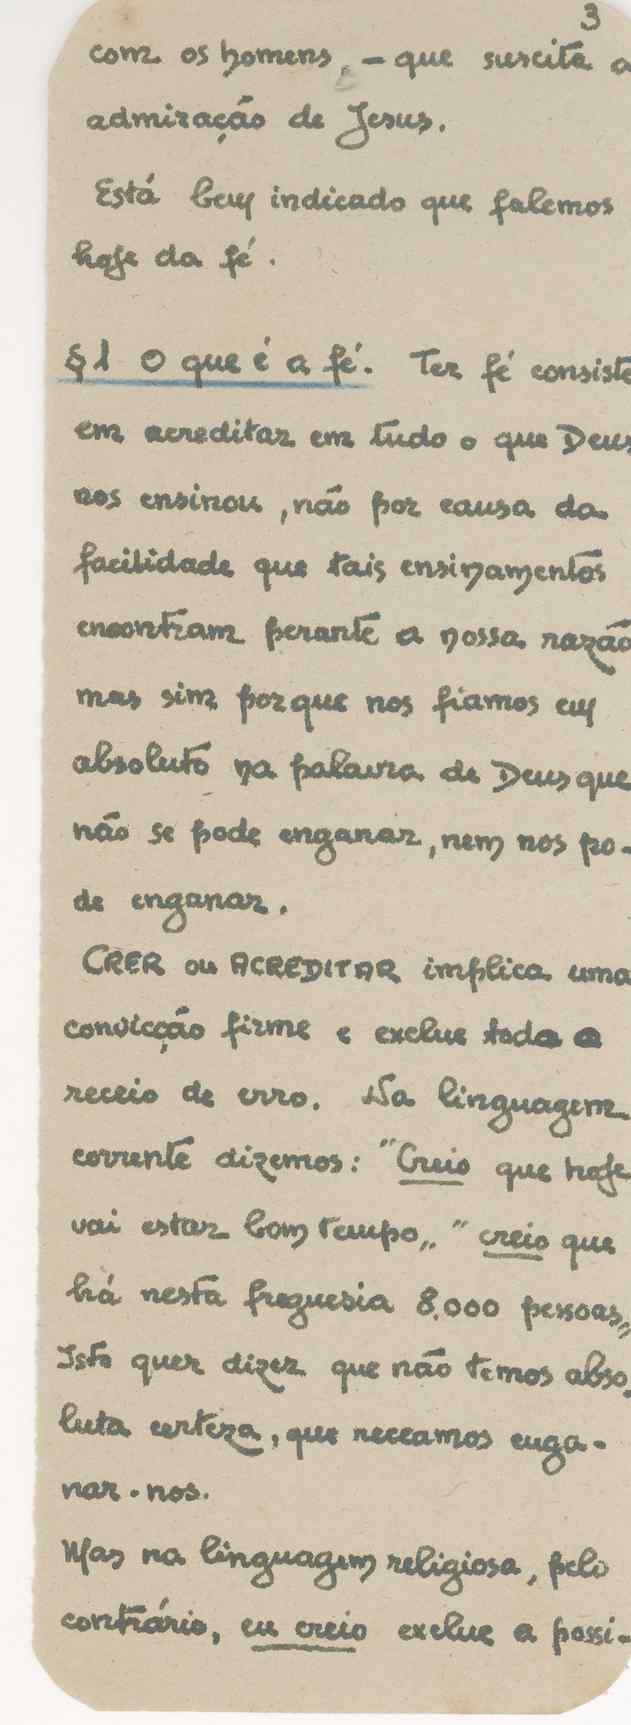 3
com os homens, - que suscita a
admiração de Jesus.
Está bem indicado que falemos
hoje da fé.
§ 1 O que é a fé. Ter fé consiste
em acreditar em tudo o que Deus
nos ensinou, não por causa da
facilidade que tais ensinamentos
encontram perante a nossa razão
mas sim porque nos fiamos em
absoluto na palavra de Deus que
não se pode enganar, nem nos po-
de enganar.
CRER ou ACREDITAR implica uma
convicção firme e exclue todo o
receio de erro. Na linguagem
corrente dizemos: "Creio que hoje
vai estar bom tempo„ "creio que
há nesta freguesia 8.000 pessoas„
Isto quer dizer que não temos abso-
luta certeza, que receamos enga-
nar-nos.
Mas na linguagem religiosa, pelo
contrário, eu creio exclue a possi-